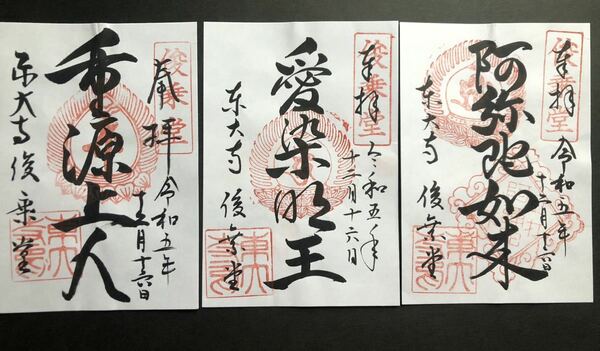 俊乗堂
奉拝
令和五年
十二月十六日
阿弥陀如来
東大寺
俊乗堂
俊乗堂
奉拝
令和五年
十二月十六日
愛染明王
東大寺
俊乗堂
俊乗堂
奉拝
令和五年
十二月十六日
重源上人
東大寺俊乗堂